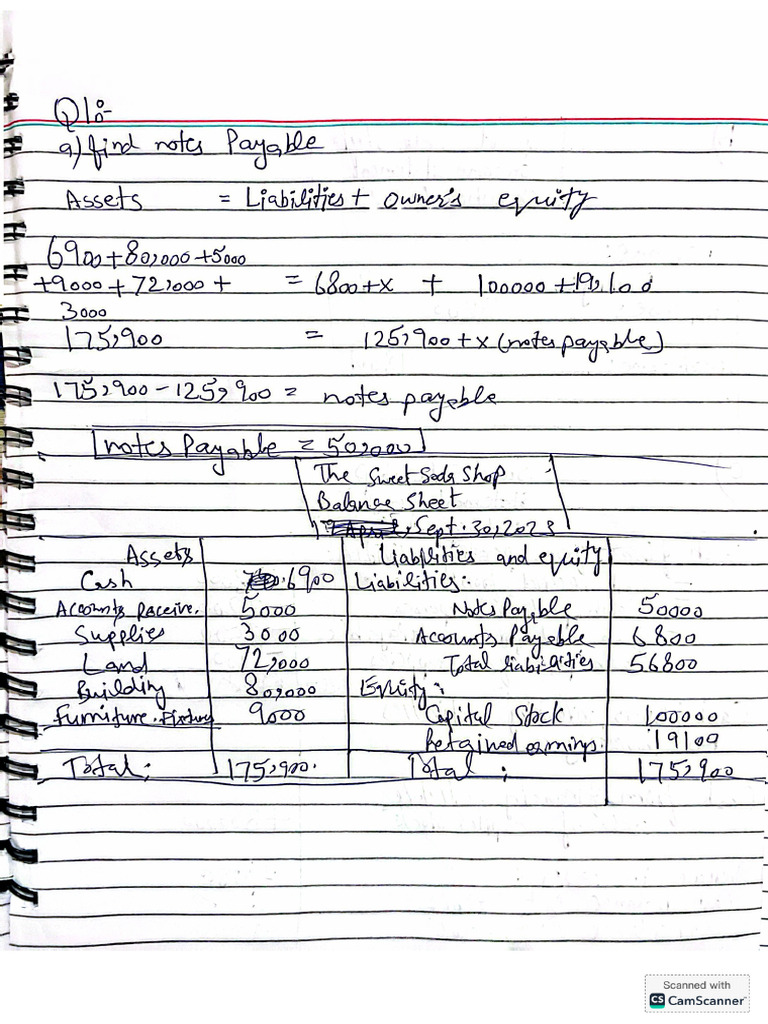 Q1:-
a) find notes Payable
Assets = Liabilities + owner's equity
6900+80,000+5000
+9000+72,000+ = 6800+x + 100000+19,100
3000
175,900 = 125,900+x (notes payable)
175,900-125,900 = notes payable
notes Payable = 50,000
The Sweet Soda Shop
Balance Sheet
Sept. 30, 2023
Assets Liabilities and equity
Cash 6900 Liabilities:
Accounts Receive. 5000 Notes Payable 50000
Supplies 3000 Accounts Payable 6800
Land 72,000 Total liabilities 56800
Building 80,000 Equity:
Furniture. Fixtures 9000 Capital Stock 100000
Retained earnings. 19100
Total: 175,900. Total : 175,900
Scanned with
CS CamScanner